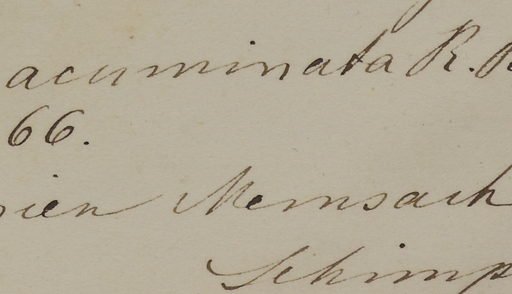 acuminata R. B
66.
rien Memsach
Schimp